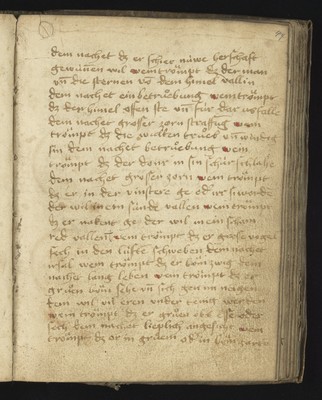 dem nachet dz er schier nüwe herschaft
gewünen wil wem trömpt dz der man
vn̄ die sternen vō dem himel vallin
dem nachet ein betruebung wem trömpt
dz der himel offen ste vn̄ für dar us falle
dem nachet groser zorn straffung wem
trömpt dz die wulken trueb vn̄ windig
sin dem nachet betruebung wem
trömpt dz der donr in sin hus schlahe
dem nachet groser zorn wem trömpt
dz er in der vinstere ge
der wil in ein sünde vallen wem trömpt
dz er nakent ge der wil in ein schan
red vallen wem trömpt dz er grose vogel
sech in den lüfte schweben dem nachet
wem trömpt dz er böm
nachet lang leben wem trömpt dz er
gruen böm sehe vn̄
dem wil vil eren
wem trömpt dz er gruen obs esse oder
sech dem nachet lieplich angesicht wem
trömpt dz er in gruenem